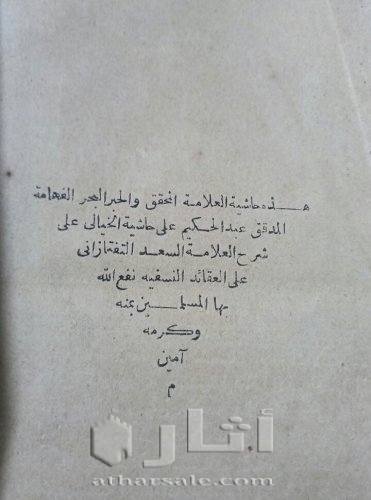 هذه حاشية العلامة المحقق والحبر البحر الفهامة
المدقق عبد الحكيم على حاشية الخيالى على
شرح العلامة السعد التفتازانى
على العقائد النسفيه نفع الله
بها المسلمين بمنه
وكرمه
آمين
م
أثار
atharsale.com